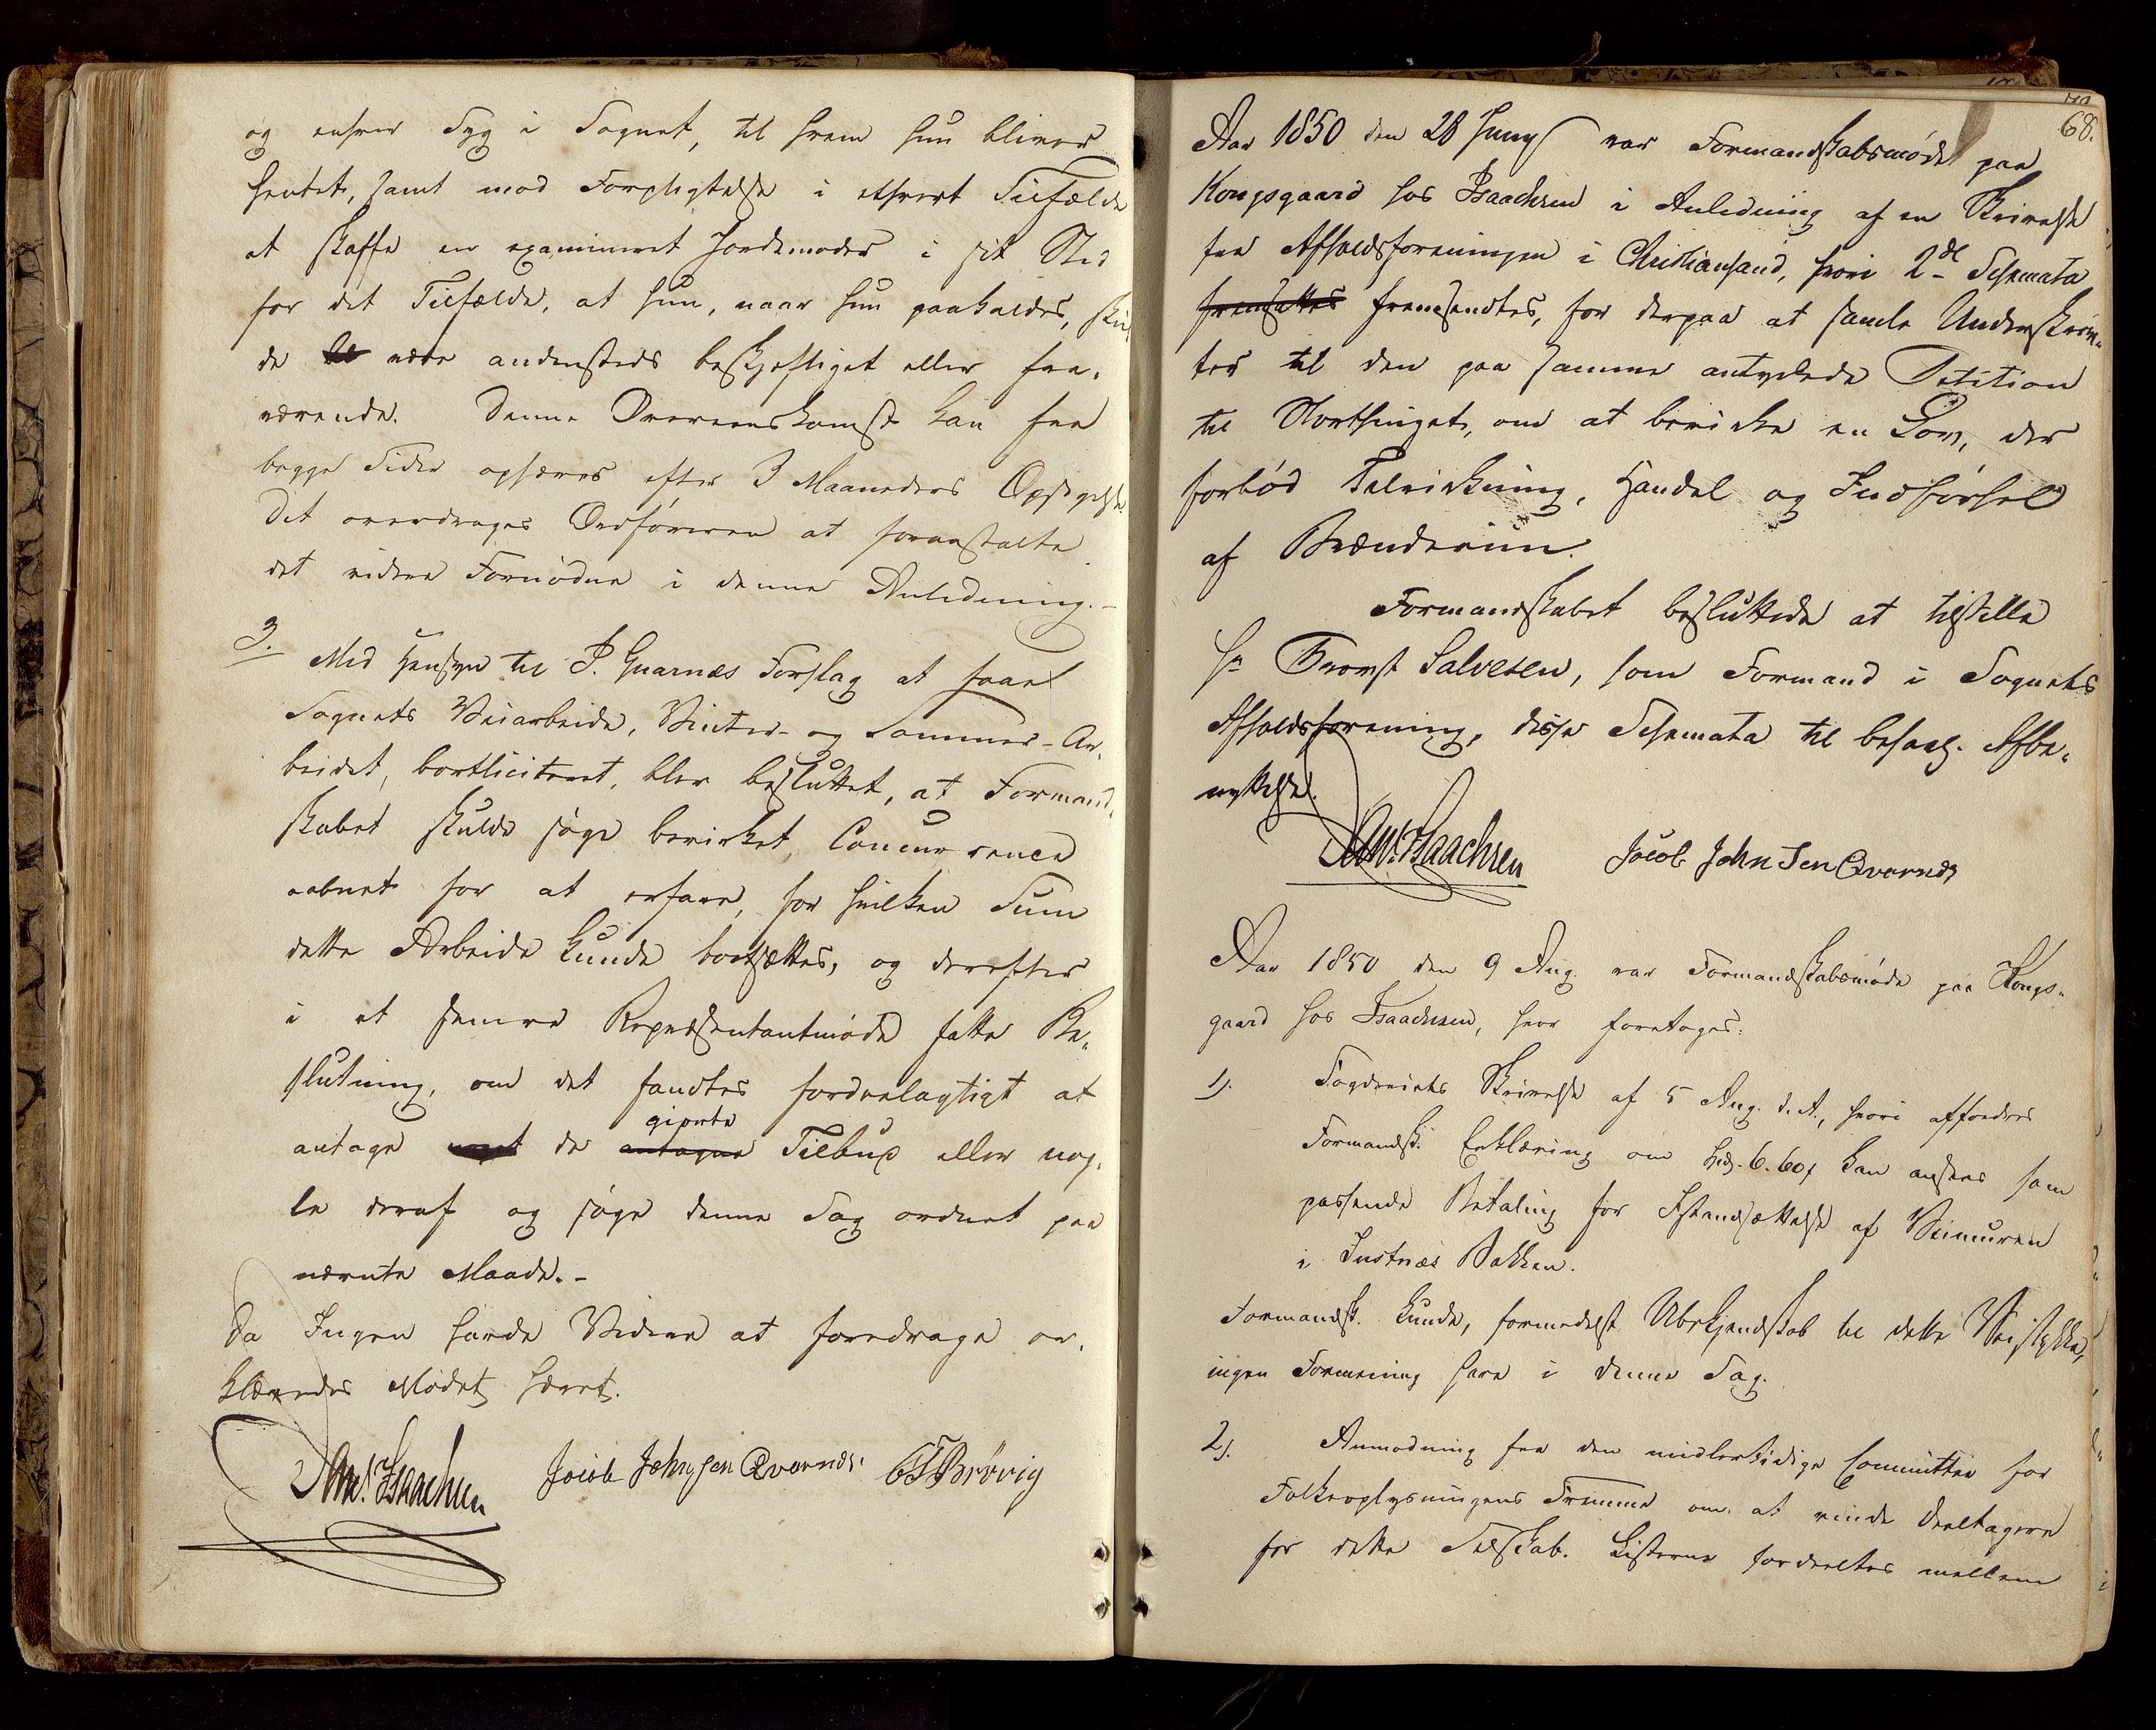 og enhver Syg i Sognet, til hvem hun bliver
hentet, samt mod Forpligtelse i ethvert Tilfælde
at skaffe en examineret Jordemoder i sit Sted
for det Tilfælde, at hun, naar hun paakaldes, skul
de være andensteds beskjeftiget eller fra-
værende. Denne Overeenskomst kan fra
begge Sider ophæves efter 3 Maaneders Opsigelse.
Det overdrages Ordføreren at foranstalte
det videre Fornødne i denne Anledning.-
3. Med Hensyn til P. Qvarnes Forslag at faae
Sognets Veiarbeide, Vinter- og Sommer-Ar-
beidet, bortliciteret, blev besluttet, at Formand-
skabet skulde søge bevirket, Concurrence
aabnet for at erfare, for hvilken Sum
dette Arbeide kunde bortsættes, og derefter
i et senere Repræsentantmøde fatte Be-
slutning, om det fandtes fordeelagtigt at
antage de antagne gjorte Tilbud eller nog-
le deraf og søge denne Sag ordnet paa
nævnte Maade.-
Da Ingen havde Videre at foredrage er-
klæredes Mødet hævet.
D. Isaachsen Jacob Johnsen Qvarnes. Brøvig
68.
Aar 1850 den 28 Juny var Formandskabsmøde paa
Kongsgaard hos Isaachsen i Anledning af en Skrivelse
fra Afholdsforeningen i Christiansand, hvori 2de Schemata
fremsattes fremsendtes, for derpaa at samle Underskrif-
ter til den paa samme antydede Petition
til Storthinget, om at bevirke en Lov, der
forbød Tilvirkning, Handel og Indførsel
af Brændeviin.
Formandskabet besluttede at tilstille
Hr Provst Salvesen, som Formand i Sognets
Afholdsforening, disse Schemata til behag. Afbe-
nyttelse.
D. Isaachsen Jacob Johnsen Qvarnes
Aar 1850 den 9 Aug. var Formandskabsmøde paa Kongs-
gaard hos Isaachsen, hvor foretoges:
1). Fogderiets Skrivelse af 5 Aug. d. A., hvori affordres
Formandsk. Erklæring om 6. 60 kan ansees som
passende Betaling for Istandsættelse af Veimuren
i Justnæs Bakken.
Formandsk. kunde, formedelst Ubekjendtskab til dette Veistykke,
ingen Formening have i denne Sag.
2). Anmodning fra den midlertidige Committee for
Folkeoplysningens Fremme om at vinde Deeltagere
for dette Selskab. Listerne fordeeltes mellem